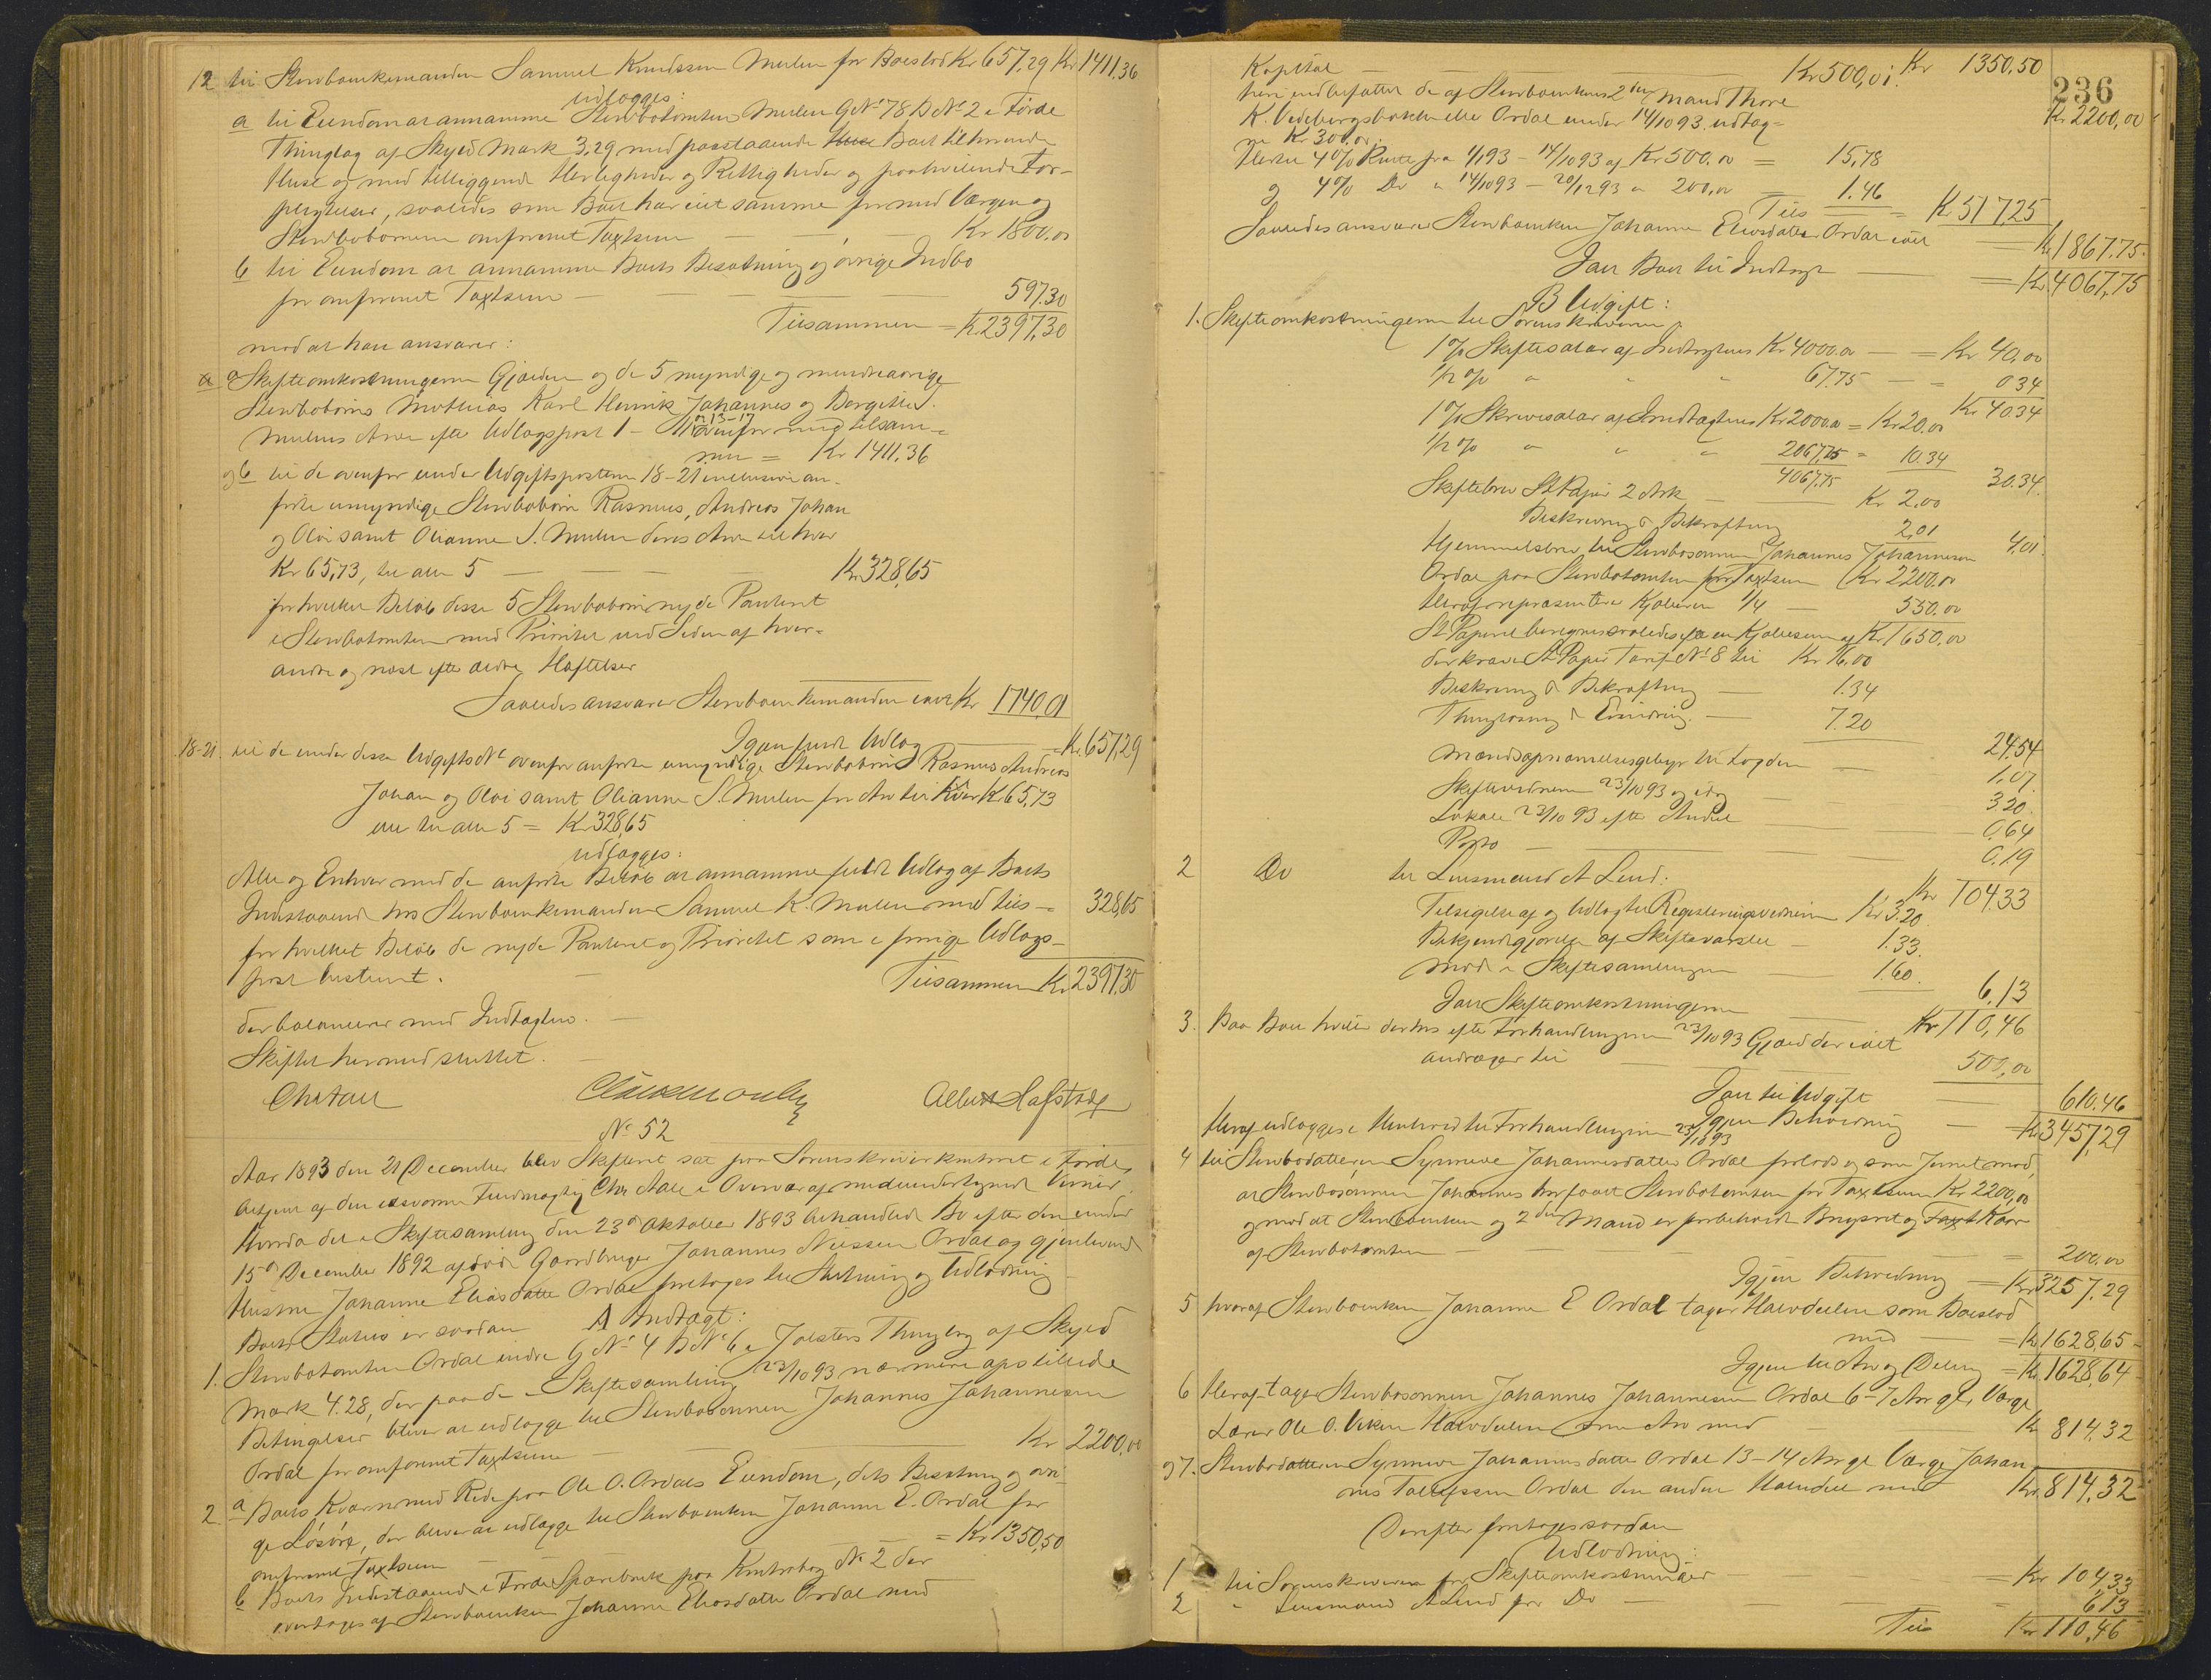 12 til Stervboenkemanden Samuel Knudssen Mulen for Boeslod Kr 657,29 Kr 1411,36
udlægges:
a til Eiendom at annamme Stervbotomten Mulen GNo 78 BNo 2 i Førde
Thinglag af Skyld Mark 3,29 med paastaaende Boet tilhørende
Huse og med tilliggende Herligheder og Rettigheder og paahvilende For-
pligtelser, saaledes som Boet har eiet samme for med Værgen og
Stervbobørnene omforenet Taxtsum Kr 1800,00
b til Eiendom at annamme Boets Besætning og øvrige Indbo
for omforenet Taxtsum 597.30
Tilsammen = Kr 2397,30
mod at han ansvarer:
a Skifteomkostningerne Gjælden og de 5 myndige og mindreaarige
Stervbobørns Mathias Karl Henrik Johannes og Bergitte S.
Mulens Arv efter Udlægspost 1 - 11 og 13-17 ovenfor med tilsam-
men = Kr 1411,36
og b til de ovenfor under Udgiftsposterne 18-21 inclusive an-
førte umyndige Stervbobørn Rasmus, Andreas Johan
og Olai samt Olianne S. Mulen deres Arv til hver
Kr 65,73, til alle 5 Kr 328,65
for hvilket Beløb disse 5 Stervbobørn nyde Panteret
i Stervbotomten med Prioritet ved Siden af hver-
andre og næst efter ældre Hæftelser
Saaledes ansvarer Stervboenkemanden ialt Kr 1740,01
Igjen fuldt Udlæg = Kr. 657,29
18-21 til de under disse Udgifts No ovenfor anførte umyndige Stervbobørn Rasmus Andreas
Johan og Olai samt Olianne S. Mulen for Arv til hver Kr 65,73
eller til alle 5 = Kr 328,65
udlægges:
Alle og Enhver med de anførte Beløb at annamme fuldt Udlæg af Boets
Indestaaende hos Stervboenkemanden Samuel K. Mulen med tils = 328,65
for hvilket Beløb de nyde Panteret og Prioritet som i forrige Udlægs-
post bestemt.
Tilsammen Kr 2397,30
der balancerer med Indtægten.
Skiftet hermed sluttet.
Chr Aall
Albert Hafstad
No 52
Aar 1893 den 21 December blev Skifteret sat paa Sorenskriverkontoret i Førde,
betjent af den edsvorne Fuldmægtig Chr Aall i Overvær af medundertegnede Vidner
Hvorda det i Skiftesamling den 23de Oktober 1893 behandlede Bo efter den under
15de December 1892 afdøde Gaardbruger Johannes Nilssen Ordal og gjenlevende
Hustru Johanne Eliasdatter Ordal foretoges til Slutning og Udlodning
Boets Status er saadan A Indtægt:
1. Stervbotomten Ordal indre G No 4 B No 6 i Jølsters Thinglag af Skyld
Mark 4.28, der paa de i Skiftesamling 23/10 93 nærmere opstillede
Betingelser bliver at udlægge til Stervbosønnen Johannes Johannesen
Ordal for omforenet Taxtsum Kr 2200,00
2. a Boets Kværn med Rede paa Ole O. Ordals Eiendom, dets Besætning og øvri-
ge Løsøre, der bliver at udlægge til Stervboenken Johanne E. Ordal for
omforenet Taxtsum = Kr 1350,50
b Boets Indestaaende i Førde Sparebank paa Kontrabog No 2 der
overtages af Stervboenken Johanne Eliasdatter Ordal med
236
Kapital Kr 500,01. Kr 1350,50
Kr 2200,00
heri indbefattet de af Stervboenkens 2den Mand Thore
K. Vedebergsbakken eller Ordal under 14/10 93 udtag-
ne Kr 300.00.
Hertil 4% Rente fra 1/1 93 - 14/10 93 af Kr 500.00 = 15,78
og 4% Do " 14/10 93 - 20/12 93 " 200,00 = 1.46
Tils = Kr 517,25
Saaledes ansvarer Stervboenken Johanne Eliasdatter Ordal ialt Kr 1867.75.
Ialt Boet til Indtægt = Kr. 4067,75
B Udgift:
1. Skifteomkostningerne til Sorenskriveren:
1% Skiftesalær af Indtægtens Kr 4000.00 = Kr 40,00
1/2 % " " " 67.75 = 0 34
Kr 40.34
1% Skrivesalær af Indtægtens Kr 2000.00 = Kr 20.00
1/2 % " " " 2067,75 = 10.34
4067,75 30.34
Skiftebrev St Papir 2 Ark Kr 2,00
Beskrivning & Bekræftning 2,01 4,01.
Hjemmelsbrev til Stervbosønnen Johannes Johannesen
Ordal paa Stervbotomten for Taxtsum Kr 2200.00
Heraf repræsenterer Kjøberen 1/4 550.00
St Papiret beregnes saaledes efter en Kjøbesum af Kr 1650.00
der kræver St Papir Tarif No 8 til Kr 16.00
Beskrivning & Bekræftning 1.34
Thinglysning & Erindring. 7.20 24,54
Mandsopnævnelsesgebyr til Fogden 1,07
Skiftevidnerne 23/10 93 og idag 3.20.
Lokale 23/10 93 efter Andel 0,64
Porto 0,19
Kr 104.33
2 Do til Lensmand A Lind:
Tilsigelse af og Udlæg til Registreringsvidnerne Kr 3.20
Bekjendtgjørelse af Skiftevarslet 1.33.
Mød i Skiftesamlingen 1.60. 6,13
Ialt Skifteomkostningerne Kr 110,46
3. Paa Boet hviler derhos efter Forhandlingerne 23/10 93 Gjæld der ialt
andrager til 500,00
Ialt til Udgift 610.46
Igjen Beholdning Kr 3457,29
Heraf udlægges i Henhold til Forhandlingerne 23/10 93
4 til Stervbodatteren Synneve Johannesdatter Ordal forlods og som Jevnet mod,
at Stervbosønnen Johannes har faaet Stervbotomten for Taxtsum Kr 2200,00
og mod at Stervboenken og 2den Mand er forbeholdt Brugsret og Kaar
af Stervbotomten = 200,00
Igjen Beholdning = Kr 3257.29
5 hvoraf Stervboenken Johanne E Ordal tager Halvdelen som Boeslod
med = Kr 1628,65
Igjen til Arv og Deling = Kr. 1628,64
6 Heraf tager Stervbosønnen Johannes Johannesen Ordal 6-7 Aar gl., Værge
Lærer Ole O. Viken Halvdelen som Arv med Kr 814,32
og 7. Stervbodatteren Synneve Johannesdatter Ordal 13-14 Aar gl Værge Johan-
nes Tollefssen Ordal den anden Halvdel med Kr. 814,32
Derefter foretoges saadan
Udlodning:
1 til Sorenskriveren for Skifteomkostninger = Kr 104,33
2 " Lensmand A Lind for Do 6,13
Tils Kr 110,46